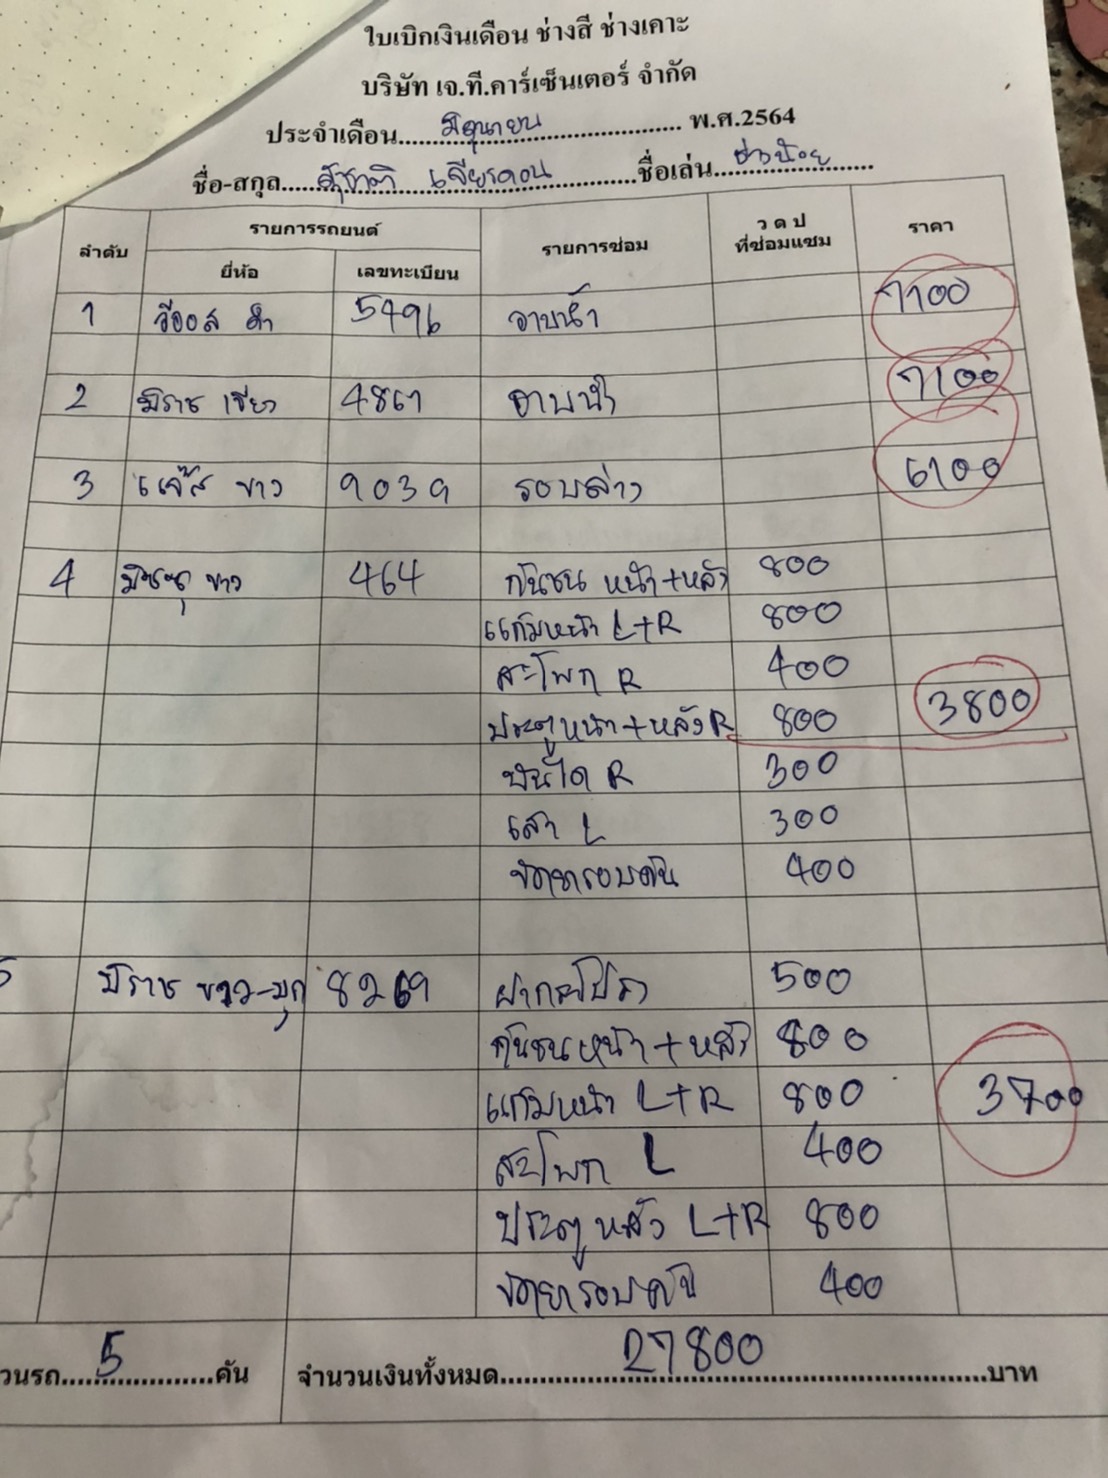 ใบเบิกเงินเดือน ช่างสี ช่างเคาะ
บริษัท เจ.ที.คาร์เซ็นเตอร์ จำกัด
ประจำเดือน....มิถุนายน.... พ.ศ.2564
ชื่อ-สกุล....สุชาติ....ชื่อเล่น....ช่างน้อย....
ลำดับ รายการรถยนต์ รายการซ่อม ว ด ป ที่ซ่อมแซม ราคา
ยี่ห้อ เลขทะเบียน
1 วีออส ดำ 5496 อาบน้ำ 7100
2 มิราช เขียว 4867 อาบน้ำ 7100
3 แจ๊ส ขาว 9039 รอบล่าง 6100
4 ขาว 464 กันชน หน้า+หลัง 800
แก้มหน้า L+R 800
สะโพก R 400
ประตูหน้า+หลัง R 800 3800
บันได R 300
เสา L 300
ขัดยารอบคัน 400
5 มิราช ขาว-มุก 8269 ฝากระโปรง 500
กันชนหน้า+หลัง 800
แก้มหน้า L+R 800 3700
สะโพก L 400
ประตูหลัง L+R 800
ขัดยารอบคัน 400
วนรถ....5....คัน จำนวนเงินทั้งหมด....27800....บาท